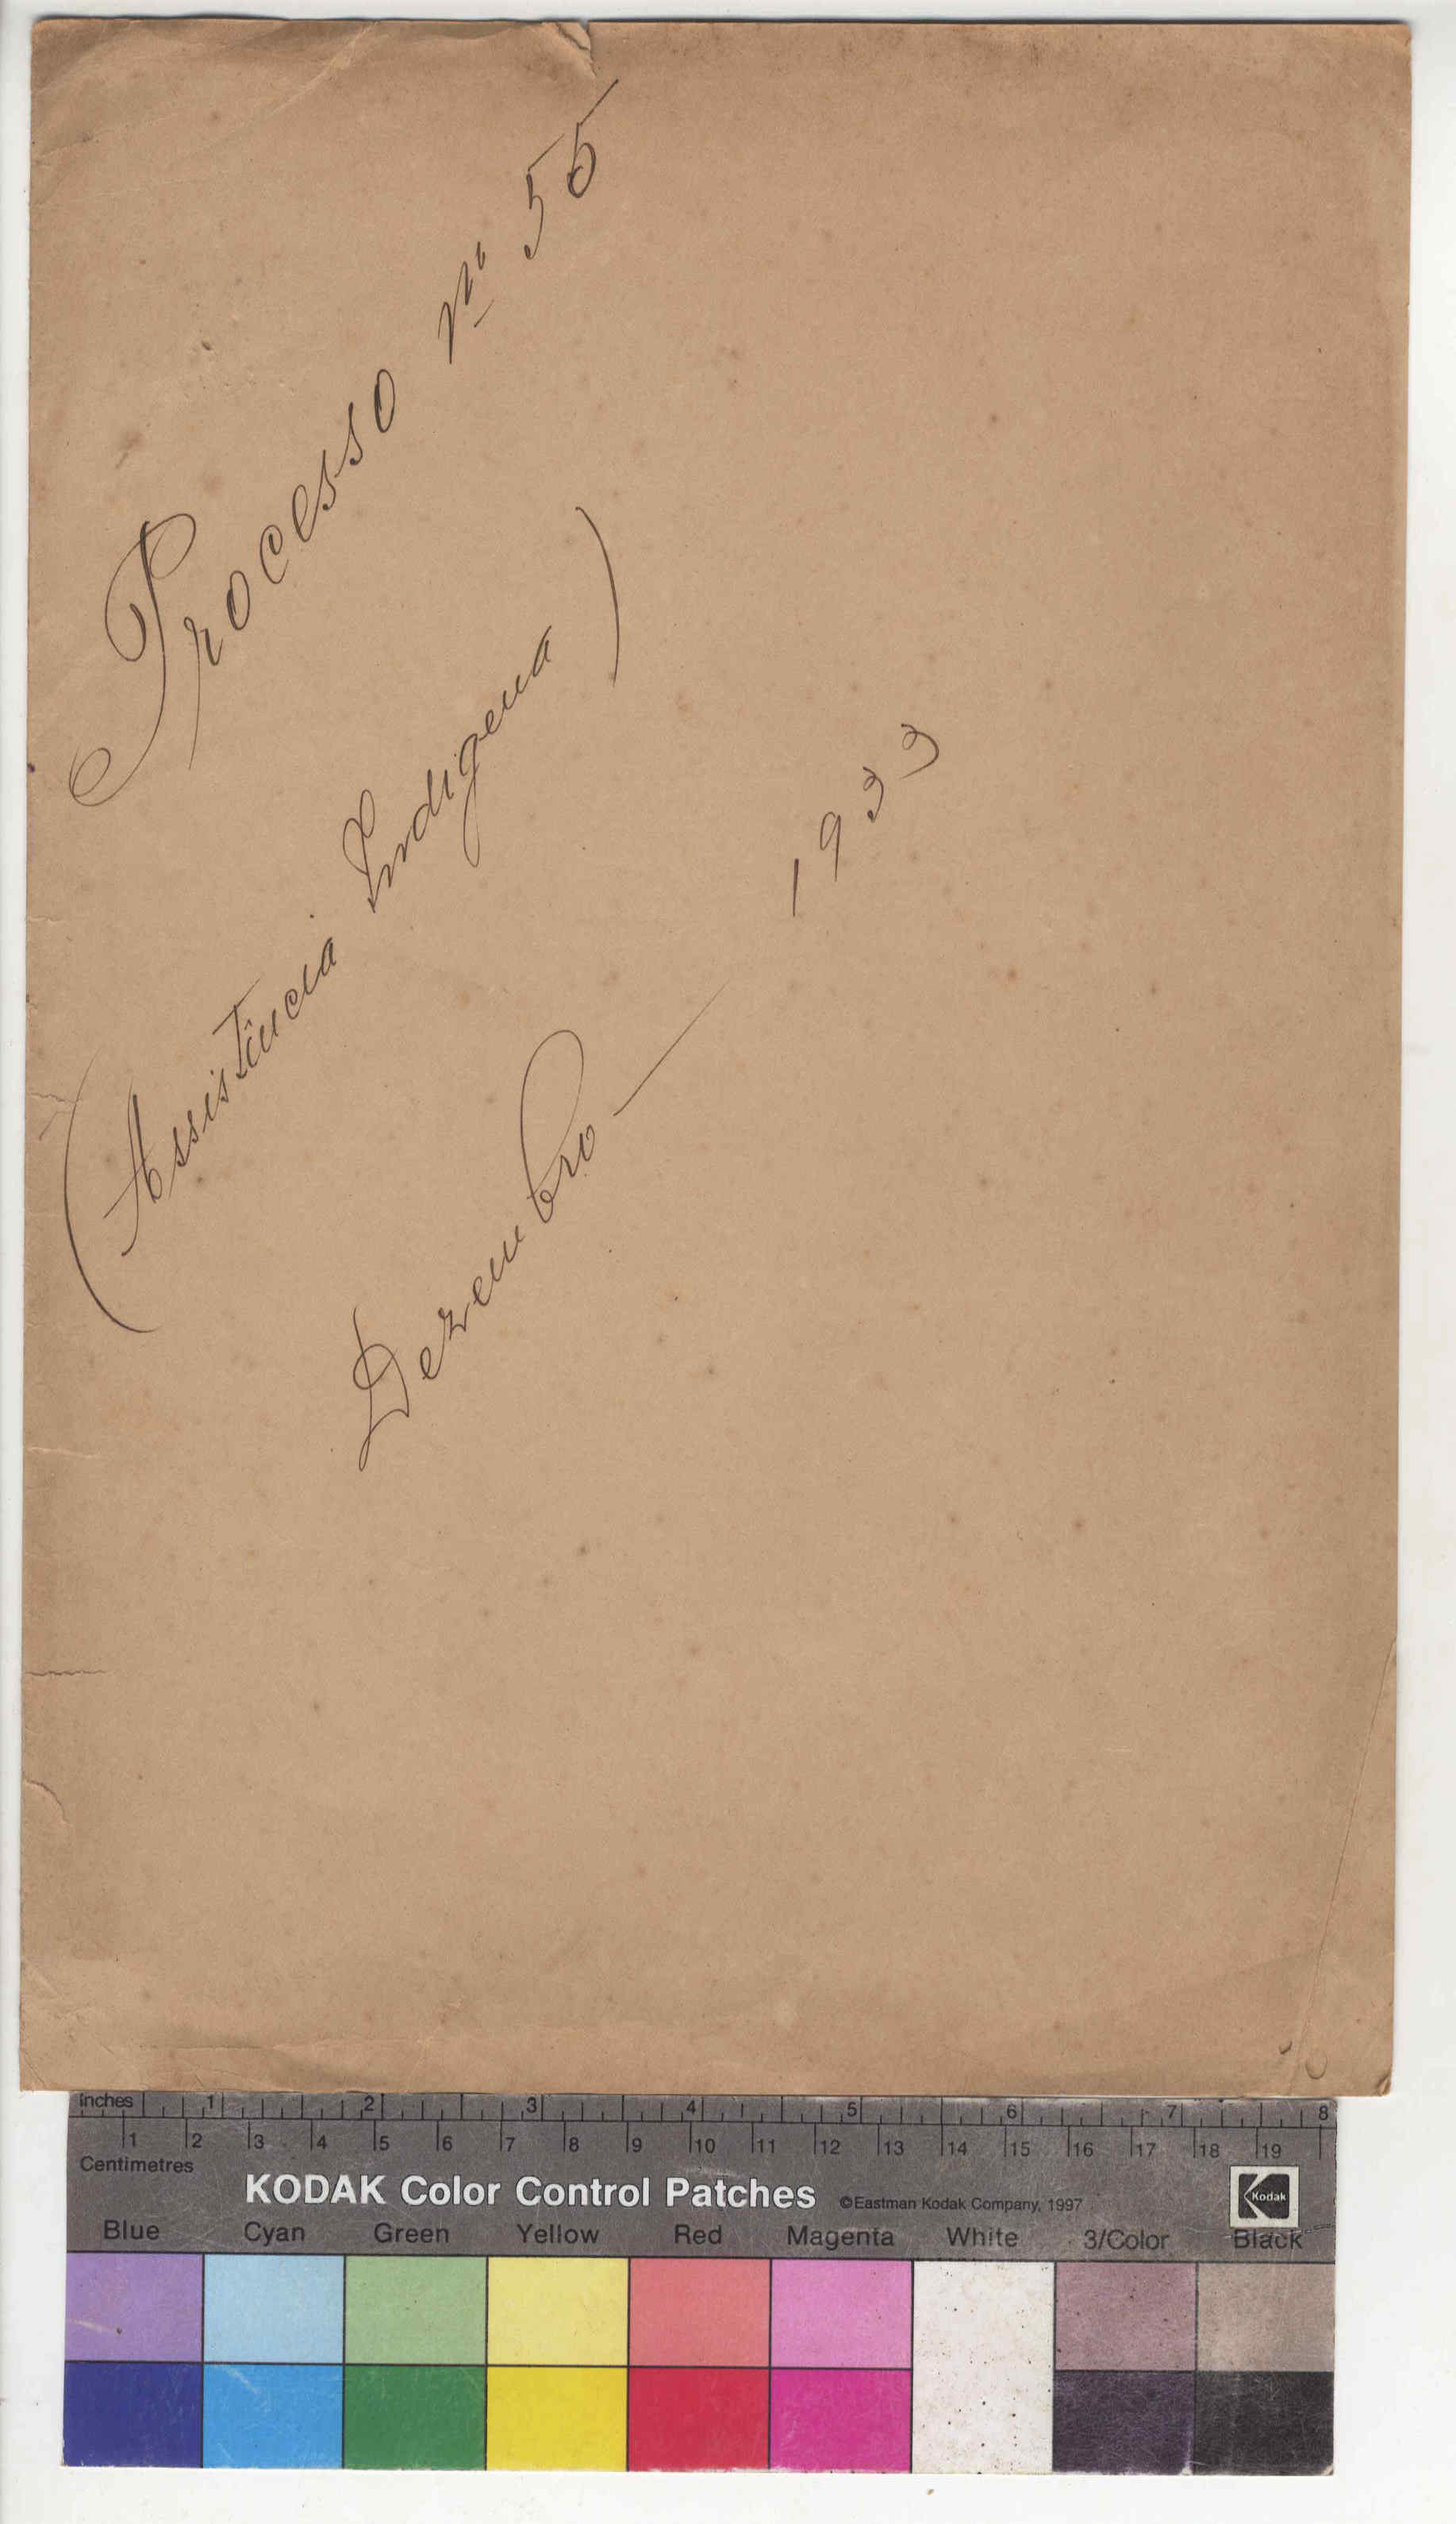 Processo nº 55
(Assistência Indigena)
Dezembro — 1933
Inches 1 2 3 4 5 6 7 8
1 2 3 4 5 6 7 8 9 10 11 12 13 14 15 16 17 18 19
Centimetres
KODAK Color Control Patches ©Eastman Kodak Company, 1997 Kodak
Blue Cyan Green Yellow Red Magenta White 3/Color Black